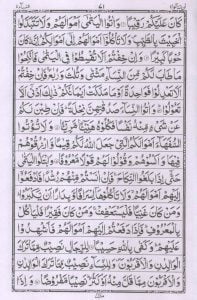 كَانَ عَلَيْكُمْ رَقِيْبًا ۝ وَاٰتُوا الْيَتٰمٰٓى اَمْوَالَهُمْ وَلَا تَتَبَدَّلُوا
الْخَبِيْثَ بِالطَّيِّبِ وَلَا تَاْكُلُوْٓا اَمْوَالَهُمْ اِلٰٓى اَمْوَالِكُمْ اِنَّهٗ كَانَ
حُوْبًا كَبِيْرًا ۝ وَاِنْ خِفْتُمْ اَلَّا تُقْسِطُوْا فِى الْيَتٰمٰى فَانْكِحُوْا
مَا طَابَ لَكُمْ مِّنَ النِّسَآءِ مَثْنٰى وَثُلٰثَ وَرُبٰعَ فَاِنْ خِفْتُمْ
اَلَّا تَعْدِلُوْا فَوَاحِدَةً اَوْ مَا مَلَكَتْ اَيْمَانُكُمْ ذٰلِكَ اَدْنٰٓى اَلَّا
تَعُوْلُوْا ۝ وَاٰتُوا النِّسَآءَ صَدُقٰتِهِنَّ نِحْلَةً فَاِنْ طِبْنَ لَكُمْ
عَنْ شَىْءٍ مِّنْهُ نَفْسًا فَكُلُوْهُ هَنِيْٓئًا مَّرِيْٓئًا ۝ وَلَا تُؤْتُوا
السُّفَهَآءَ اَمْوَالَكُمُ الَّتِىْ جَعَلَ اللّٰهُ لَكُمْ قِيٰمًا وَّارْزُقُوْهُمْ
فِيْهَا وَاكْسُوْهُمْ وَقُوْلُوْا لَهُمْ قَوْلًا مَّعْرُوْفًا ۝ وَابْتَلُوا الْيَتٰمٰى
حَتّٰٓى اِذَا بَلَغُوا النِّكَاحَ فَاِنْ اٰنَسْتُمْ مِّنْهُمْ رُشْدًا فَادْفَعُوْٓا
اِلَيْهِمْ اَمْوَالَهُمْ وَلَا تَاْكُلُوْهَآ اِسْرَافًا وَّبِدَارًا اَنْ يَّكْبَرُوْا
وَمَنْ كَانَ غَنِيًّا فَلْيَسْتَعْفِفْ وَمَنْ كَانَ فَقِيْرًا فَلْيَاْكُلْ
بِالْمَعْرُوْفِ فَاِذَا دَفَعْتُمْ اِلَيْهِمْ اَمْوَالَهُمْ فَاَشْهِدُوْا
عَلَيْهِمْ وَكَفٰى بِاللّٰهِ حَسِيْبًا ۝ لِلرِّجَالِ نَصِيْبٌ مِّمَّا تَرَكَ
الْوَالِدٰنِ وَالْاَقْرَبُوْنَ وَلِلنِّسَآءِ نَصِيْبٌ مِّمَّا تَرَكَ
الْوَالِدٰنِ وَالْاَقْرَبُوْنَ مِمَّا قَلَّ مِنْهُ اَوْ كَثُرَ نَصِيْبًا مَّفْرُوْضًا ۝ وَاِذَا